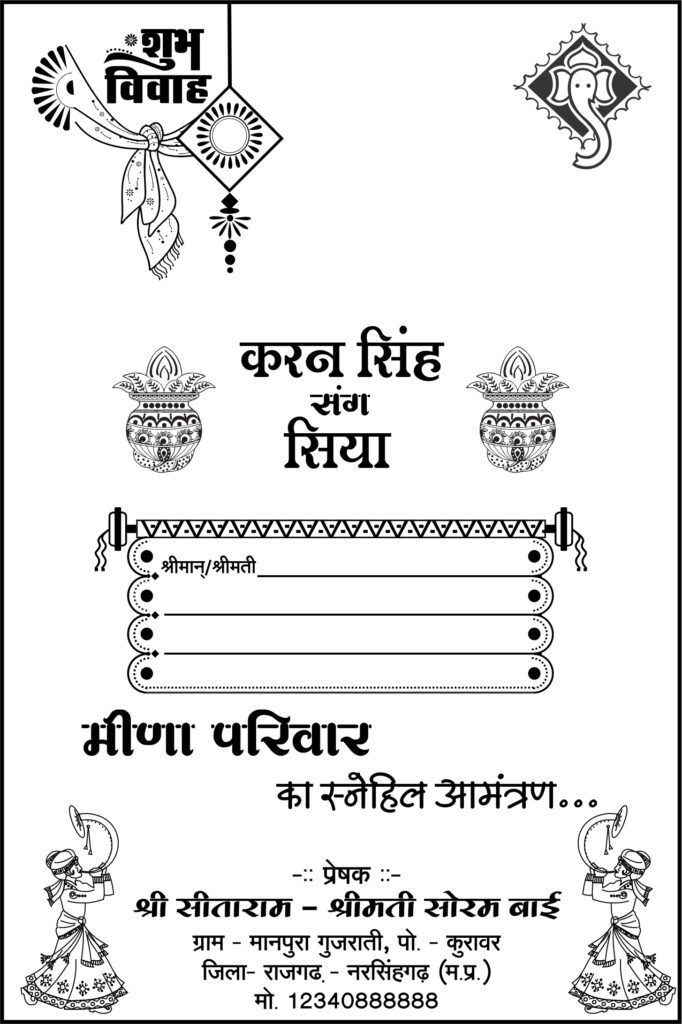 शुभ
विवाह
करन सिंह
संग
सिया
श्रीमान्/श्रीमती
मीणा परिवार
का स्नेहिल आमंत्रण...
-:: प्रेषक ::-
श्री सीताराम - श्रीमती सोरम बाई
ग्राम - मानपुरा गुजराती, पो. - कुरावर
जिला- राजगढ़ - नरसिंहगढ़ (म.प्र.)
मो. 12340888888